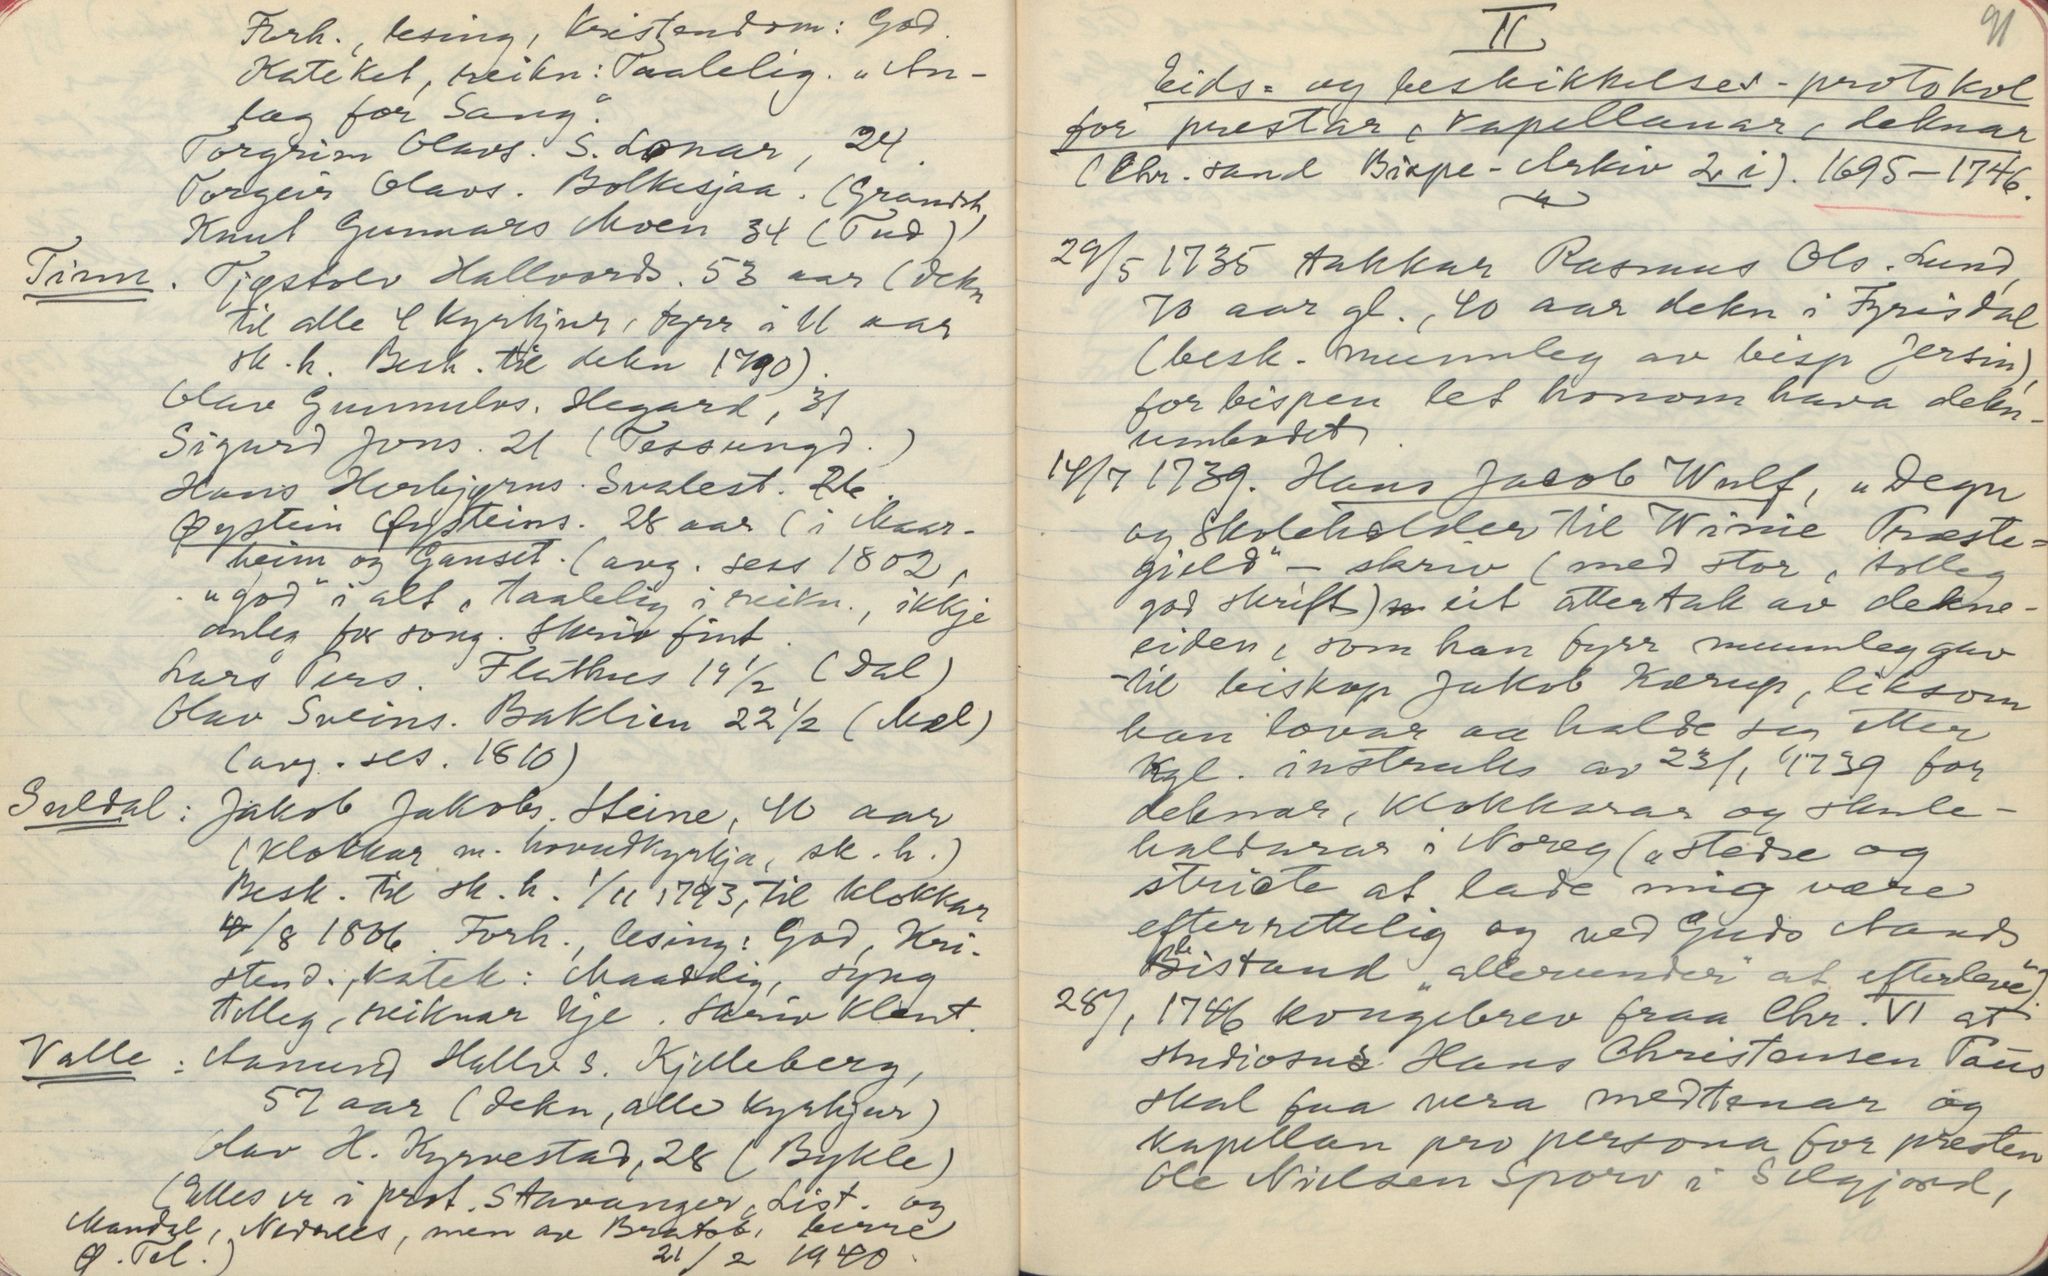 Forh., lesing, Kristendom: God.
Kateket, reikn: Taalelig. „An-
læg for Sang“.
Torgrim Olavs. S. Lonar, 24.
Torgeir Olavs. Bolkesjaa. (Gransh.)
Knut Gunnars Moen 34 (Tud)
Tinn. Tjøstolv Hallvords. 53 aar (dekn
til alle 4 Kyrkjur, fyrr i 11 aar
sk.h. Besk. til dekn 1790).
Olav Gunnulvs. Hegard, 31
Sigurd Jons. 21 (Tessungd.)
Hans Herbjørns. Svalest. 26.
Øystein Øysteins. 28 aar (i Maar-
heim og Gauset. (avg. sess 1802,
„god“ i alt, taalelig i reikn., ikkje
anleg for song. Skriv fint.
Lars Pers. Flathus 19½ (Dal)
Olav Sveins. Baklien 22½ (Mæl)
(avg. ses. 1810)
Suldal: Jakob Jakobs. Steine, 40 aar
(Klokkar m. hovudkyrkja, sk.h.)
Besk. til sk.h. 1/11 1793, til klokkar
4/8 1806. Forh., lesing: God, Kri-
stend., katek: Maadelig, syng
tolleg, reiknar ikje. Skriv klent.
Valle: Aamund Hallv s. Kjelleberg,
57 aar (dekn, alle kyrkjur)
Olav H. Kyrvestad, 28 (Bykle)
(Elles er i prot. Stavanger, List. og
Mandal, Nedenes, men av Bratsb. berre
Ø. Tel.) 21/2 1940.
II 91
Eids- og beskikkelses-protokol
for prestar, kapellanar, deknar
(Chr.sand Bispe-Arkiv 2 i). 1695–1746.
29/5 1735 takkar Rasmus Ols. Lund,
70 aar gl., 40 aar dekn i Fyrisdal
(besk. munnleg av bisp Jersin)
for bispen let honom hava dekn-
umbodet.
14/7 1739. Hans Jacob Wulf, „Degn
og Skoleholder til Winie Præste-
gield“ – skriv (med stor, tolleg
god skrift) eit attertak av dekne-
eiden, som han fyrr munnleg gav
til biskop Jakob Kærup, liksom
han lovar aa halde seg etter
Kgl. instruks av 23/1 1739 for
deknar, klokkarar og skule-
haldarar i Noreg („stedse og
stricte at lade mig være
efterrettelig og ved Guds Aands
Bistand „allerunder“ at efterleve“).
28/1 1746 kongebrev fraa Chr. VI at
studiosus Hans Christensen Taus
skal faa vera medtenar og
kapellan pro persona for presten
Ole Nielsen Sporv i Selgjord,